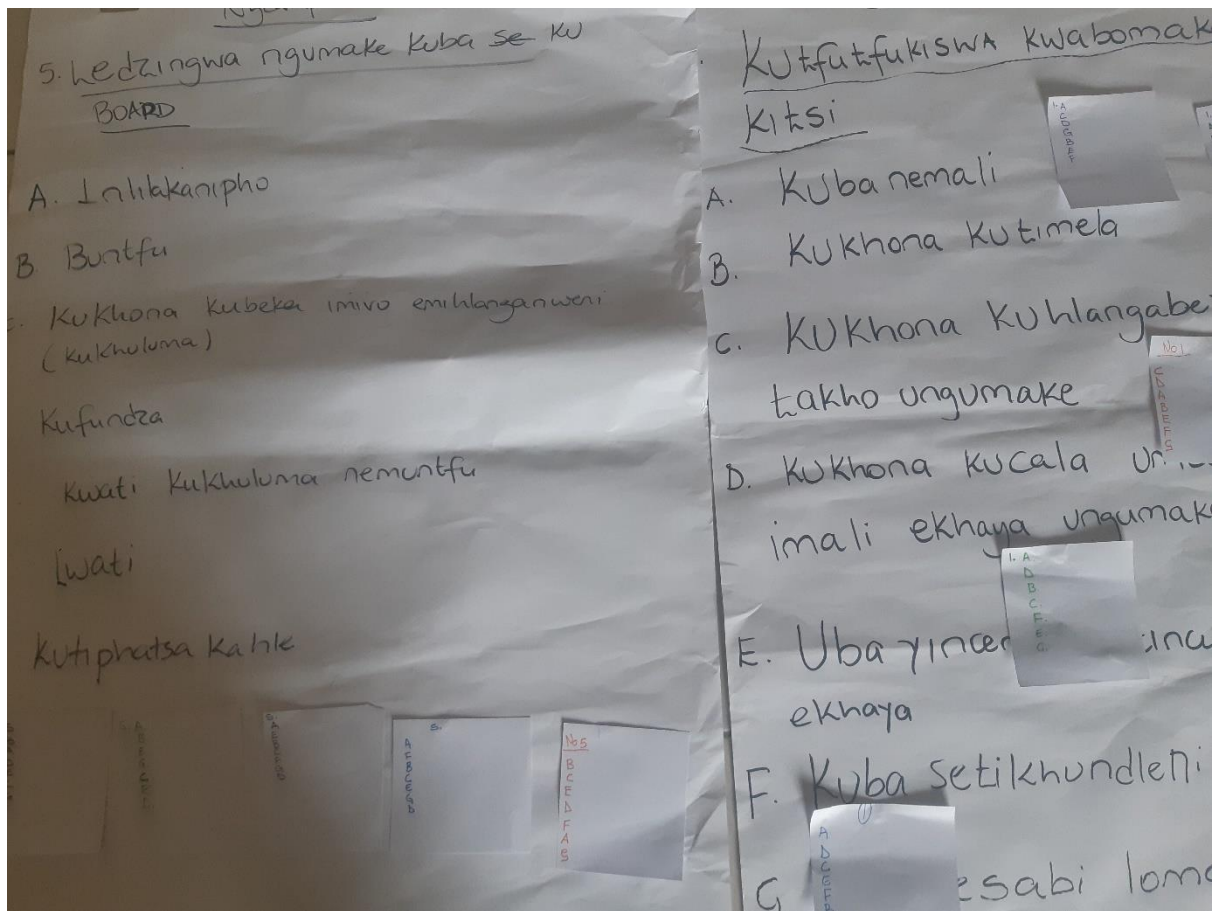 5. Ledzingwa ngumake kuba se ku
BOARD
A. Inhlakanipho
B Buntfu
Kukhona kubeka imivo emihlanganweni
(kukhuluma)
Kufundza
Kwati kukhuluma nemuntfu
Lwati
Kutiphatsa kahle
5.
A
F
B
C
E
G
D
No 5
B
C
E
D
F
A
G
Kutfutfukiswa kwabomak
kitsi
A. Kuba nemali
B. Kukhona kutimela
C. Kukhona kuhlangabe
takho ungumake
D. Kukhona kucala
imali ekhaya ungumak
E. Uba yincen
ekhaya
F. Kuba setikhundleni
G esabi lom
1. A
C
D
G
B
E
F
No 1
C
D
A
B
E
F
G
1. A
D
B
C
F
E
G
1
A
D
C
E
F